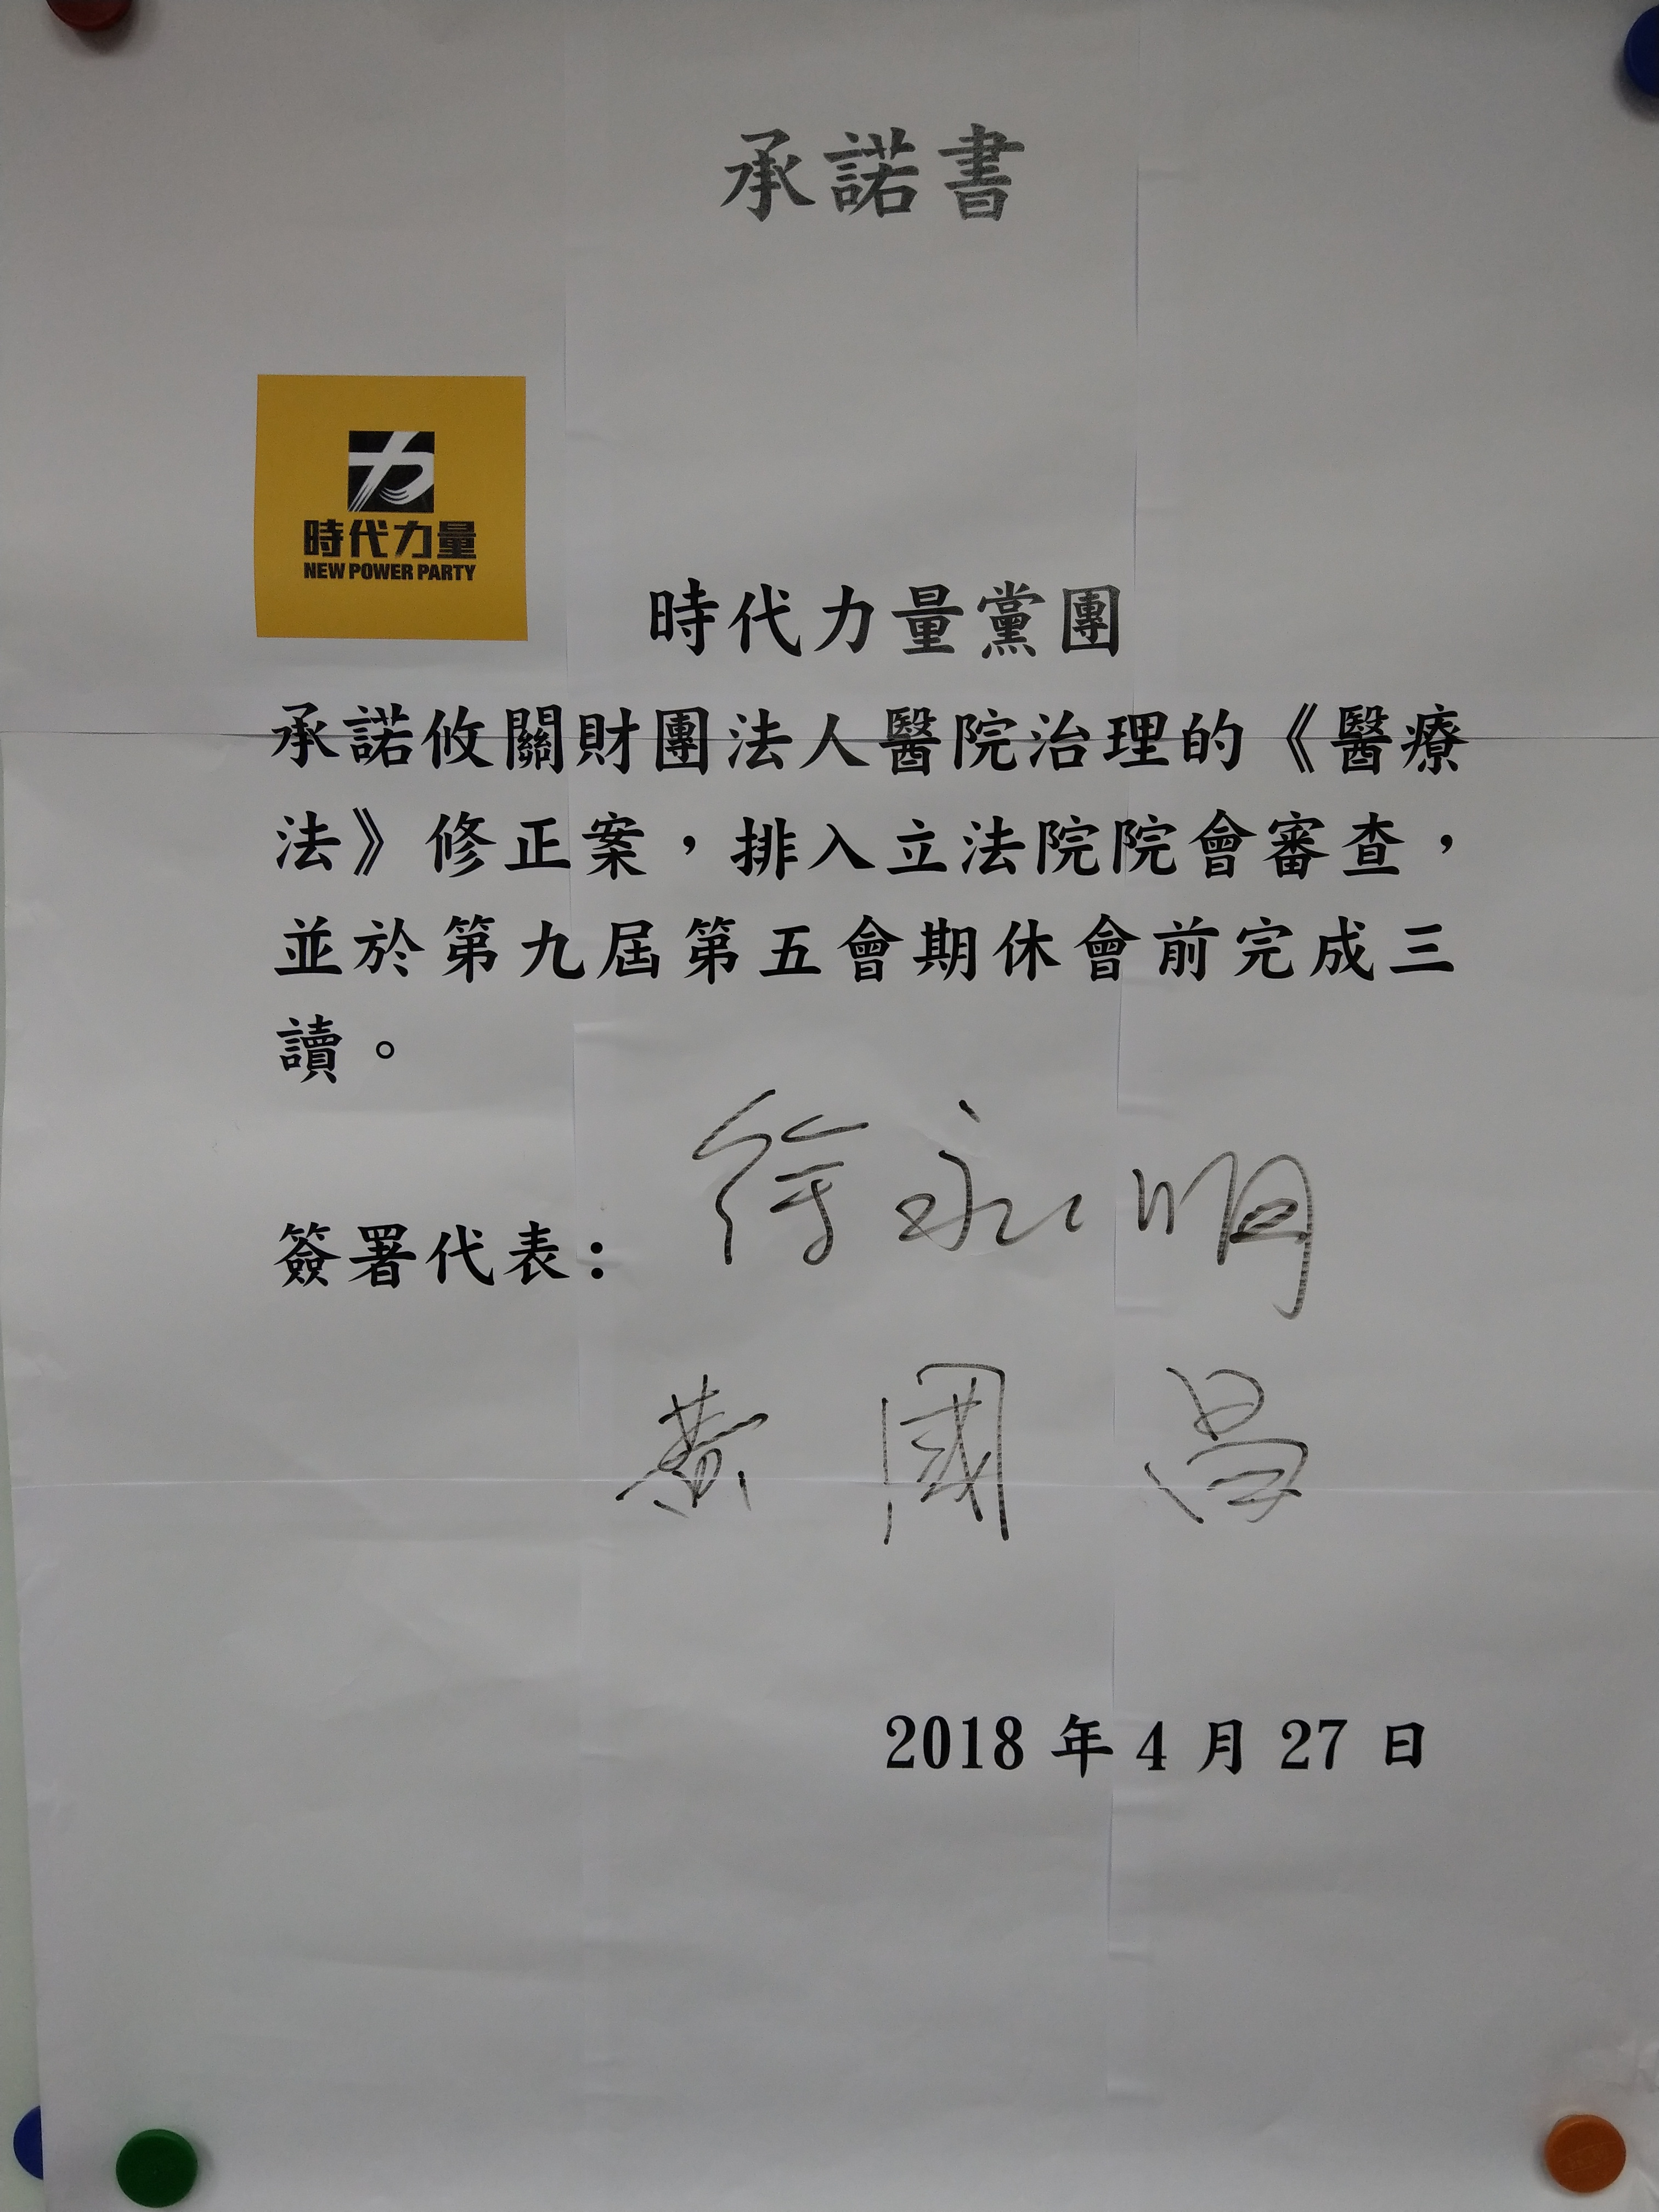 承諾書
時代力量
NEW POWER PARTY
時代力量黨團
承諾攸關財團法人醫院治理的《醫療
法》修正案，排入立法院院會審查，
並於第九屆第五會期休會前完成三
讀。
簽署代表：徐永明
黃國昌
2018 年 4 月 27 日